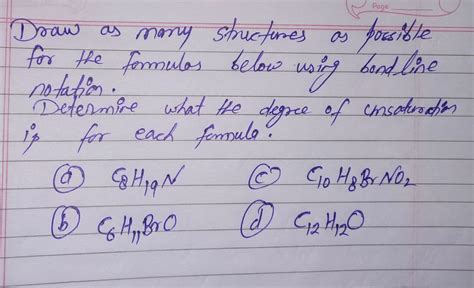 Page
Draw as many structures as possible
for the formulas below using bond line
notation.
Determine what the degree of unsaturation
is for each formula.
(a) C8H19N (c) C10H8BrNO2
(b) C6H11BrO (d) C12H12O